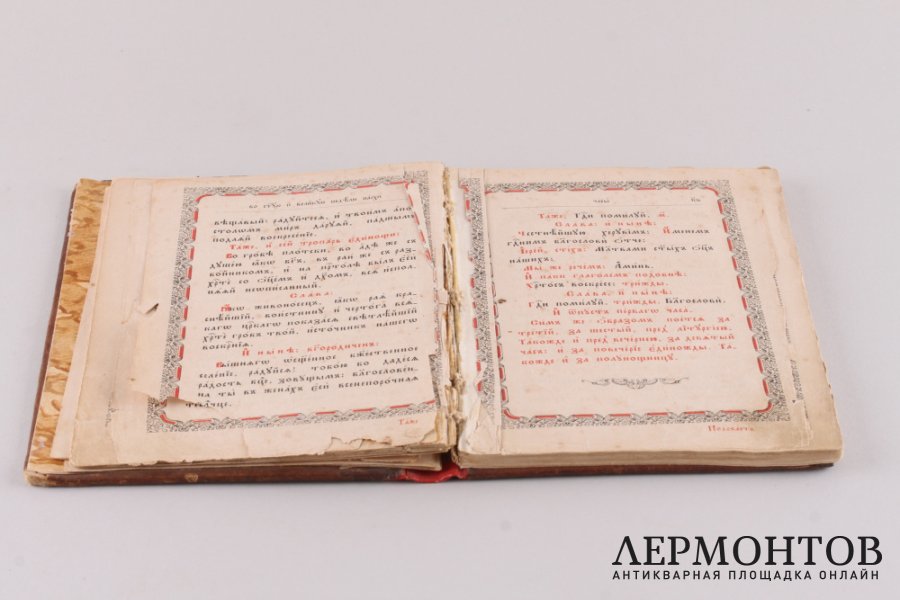 во ст҃ꙋю и҆ вели́кꙋю недѣ́лю па́схи
вѣща́вый: ра́дꙋйтесѧ, и҆ твои̑мъ а҆по́
столѡмъ ми́ръ да́рꙋѧй, па́дшымъ
пода́ѧй воскресе́нїе.
Та́же, и҆ сі́й тропарь̀ є҆ди́ножды:
Во гро́бѣ пло́тски, во а҆́дѣ же съ
дꙋше́ю ꙗ҆́кѡ бг҃ъ, въ раи́ же съ раз
бо́йникомъ, и҆ на прⷭ҇то́лѣ бы́лъ є҆сѝ
хрⷭ҇тѐ со ѻ҆ц҃е́мъ и҆ дх҃омъ, всѧ̑ и҆сполнѧ́
ѧй неѡпи́санный.
Сла́ва:
Ꙗ҆́кѡ живоно́сецъ, ꙗ҆́кѡ раѧ̀ кра
снѣ́йшїй, вои́стиннꙋ и҆ черто́га всѧ́
кагѡ ца́рскагѡ показа́сѧ свѣтлѣ́йшїй
хрⷭ҇тѐ гро́бъ тво́й, и҆сто́чникъ на́шегѡ
воскрⷭ҇нїѧ.
И҆ ны́нѣ, бг҃оро́диченъ:
Вы́шнѧгѡ ѡ҆сщ҃е́нное бж҃е́ственное
селе́нїе, ра́дꙋйсѧ: тобо́ю бо даде́сѧ
ра́дость бцⷣе, зовꙋ́щымъ: благослове́н
на ты̀ въ жена́хъ є҆сѝ всенепоро́чнаѧ
влⷣчце.
Та́же
часы̀
Та́же: Гдⷭ҇и поми́лꙋй, м҃.
Сла́ва: и҆ ны́нѣ:
Честнѣ́йшꙋю херꙋві̑мъ: И҆́менемъ
гдⷭ҇нимъ благословѝ ѻ҆́тче:
І҆ере́й, сті́хъ: Мл҃твами ст҃ы́хъ ѻ҆ц҃ъ
на́шихъ:
Мы́ же рече́мъ: А҆ми́нь.
И҆ па́ки глаго́лемъ подо́бнѣ:
Хрⷭ҇то́съ воскре́се: три́жды.
Сла́ва: и҆ ны́нѣ:
Гдⷭ҇и поми́лꙋй, три́жды. Благословѝ.
И҆ ѿпꙋ́стъ пе́рвагѡ часа̀.
Си́мъ же ѻ҆́бразомъ пое́тсѧ за
тре́тїй, за шесты́й, пред̾ лїтꙋргі́ею.
Та́кожде и҆ пред̾ вече́рнею, за девѧ́тый
ча́съ: и҆ за повече́рїе є҆ди́ножды. Та́
кожде и҆ за полꙋ́нощницꙋ.
ЛЕРМОНТОВ
АНТИКВАРНАЯ ПЛОЩАДКА ОНЛАЙН